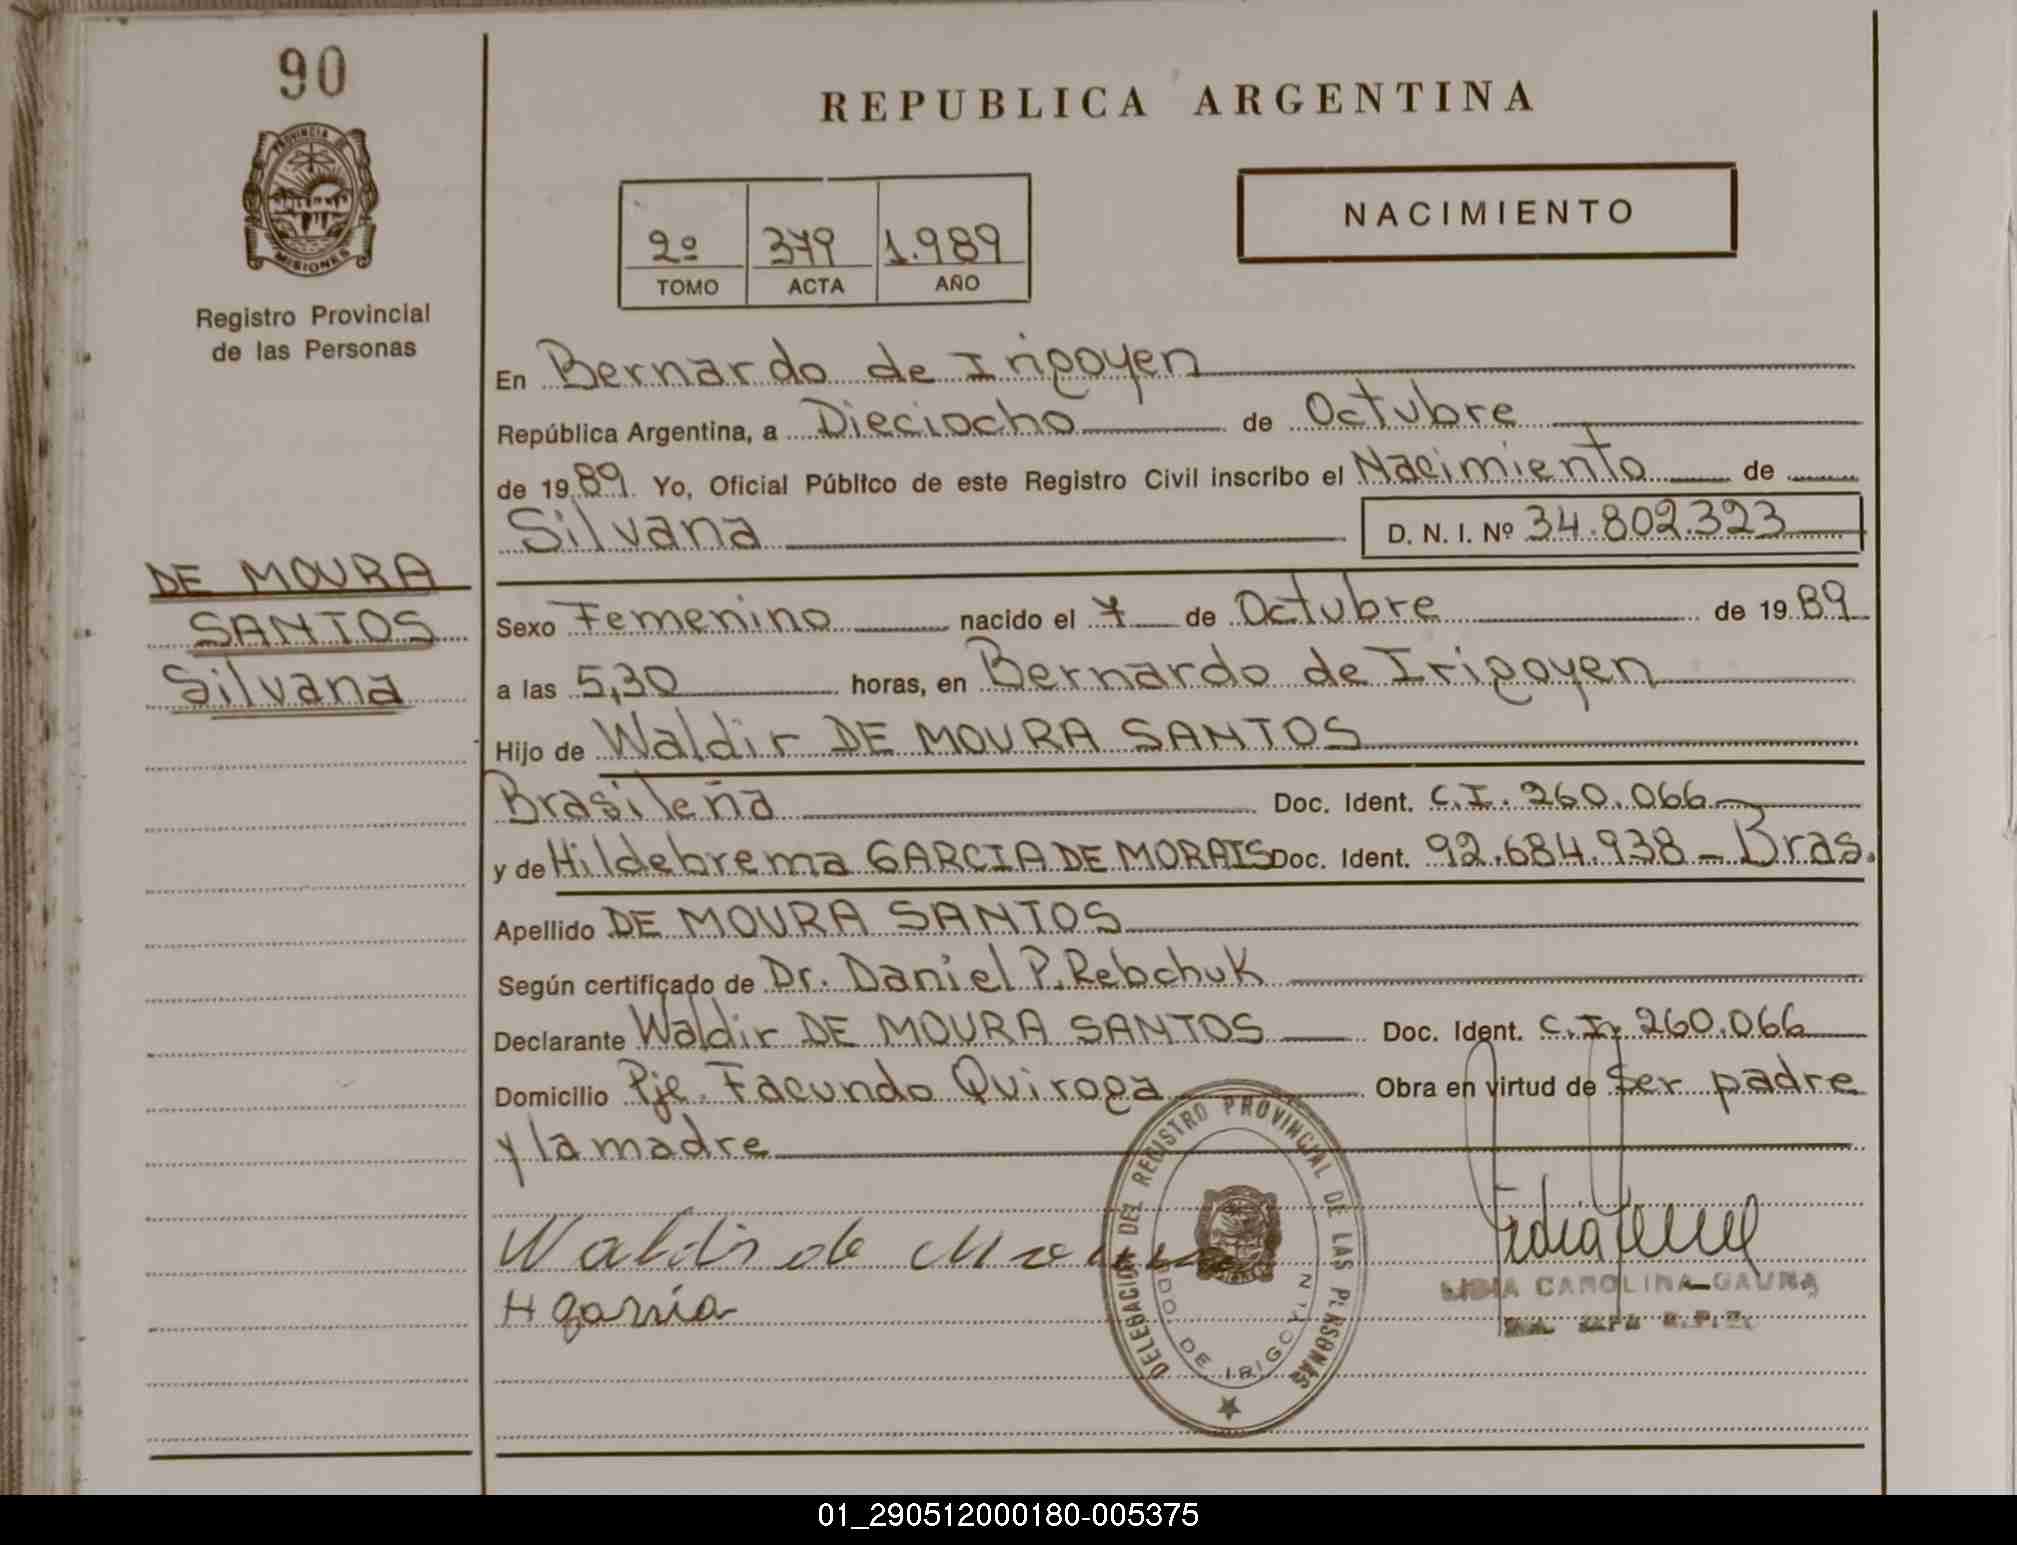 90
PROVINCIA DE
MISIONES
Registro Provincial
de las Personas
DE MOURA
SANTOS
Silvana
REPUBLICA ARGENTINA
2º 379 1.989
TOMO ACTA AÑO
NACIMIENTO
En Bernardo de Irigoyen
República Argentina, a Dieciocho de Octubre
de 1989 Yo, Oficial Público de este Registro Civil inscribo el Nacimiento de
Silvana D. N. I. Nº 34.802.323
Sexo Femenino nacido el 7 de Octubre de 1989
a las 5,30 horas, en Bernardo de Irigoyen
Hijo de Waldir DE MOURA SANTOS
Brasileña Doc. Ident. C.I. 260.066
y de Hildebrema GARCIA DE MORAIS Doc. Ident. 92.684.938 - Bras.
Apellido DE MOURA SANTOS
Según certificado de Dr. Daniel P. Rebchuk
Declarante Waldir DE MOURA SANTOS Doc. Ident. C.I. 260.066
Domicilio Pje. Facundo Quiroga Obra en virtud de Ser padre
y la madre
Waldir de Moura
H garcia
DELEGACION DEL REGISTRO PROVINCIAL DE LAS PERSONAS
DO. DE IRIGOYEN
LIDIA CAROLINA GAUNA
01_290512000180-005375